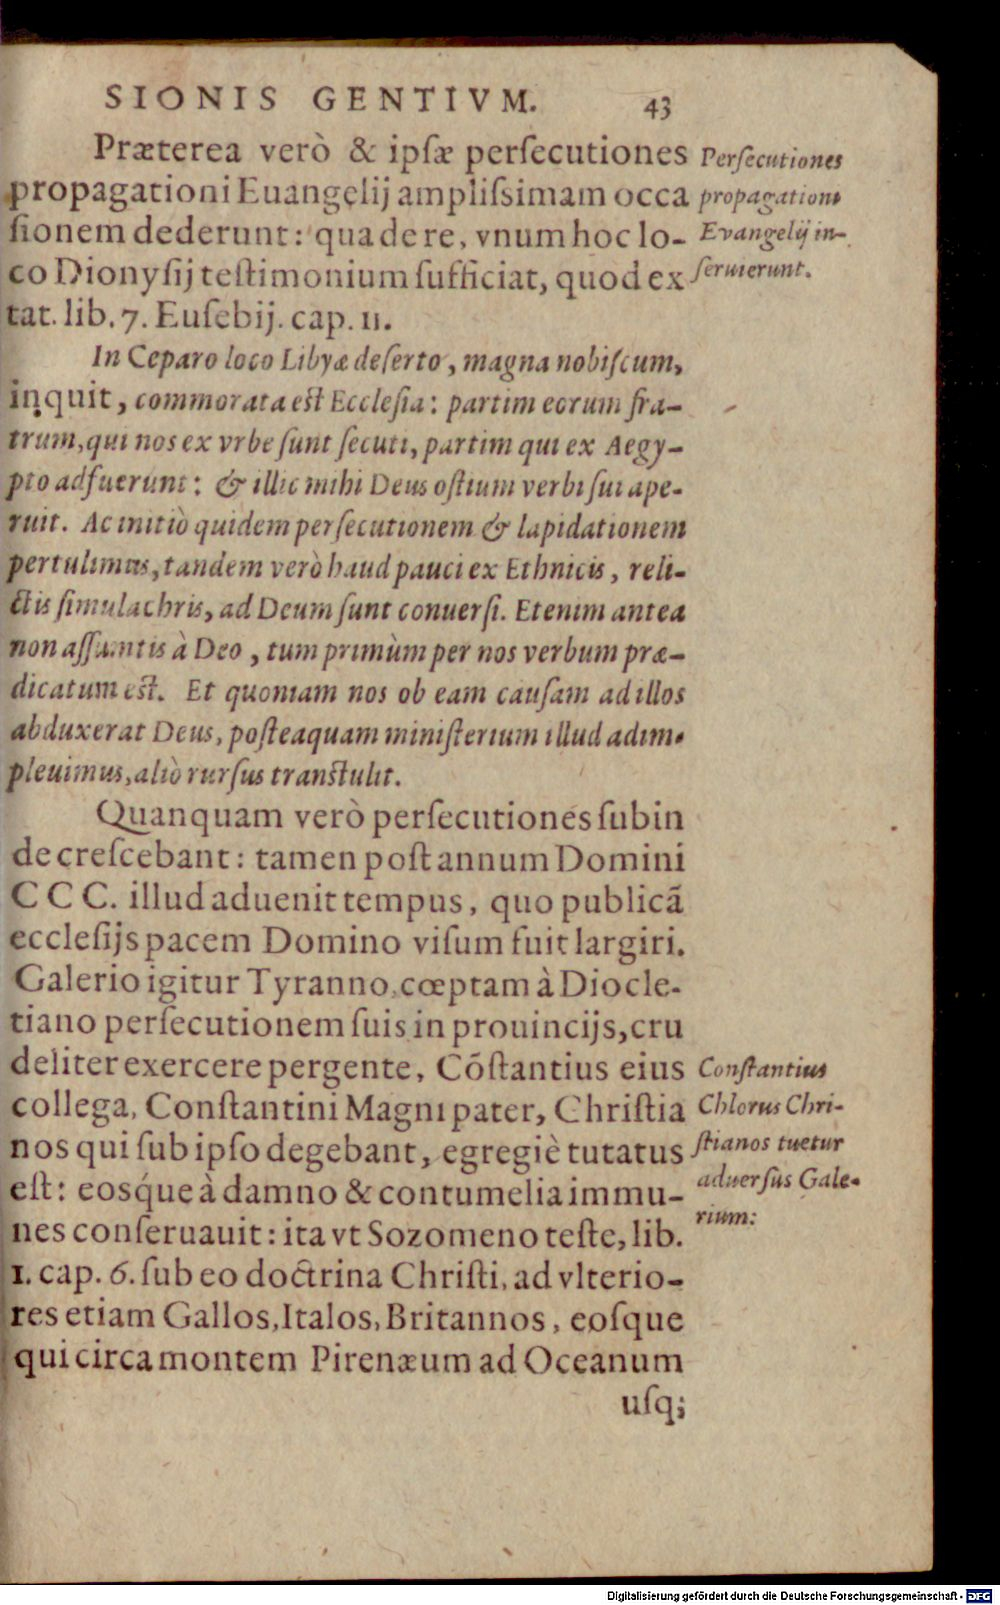 SIONIS GENTIVM. 43
Præterea verò & ipſæ perſecutiones
propagationi Euangelij ampliſsimam occa
ſionem dederunt: qua de re, vnum hoc lo-
co Dionyſij teſtimonium ſufficiat, quod ex
tat. lib. 7. Euſebij. cap. 11.
Perſecutiones
propagationi
Evangelij in-
ſeruierunt.
In Ceparo loco Libyæ deſerto, magna nobiſcum,
inquit, commorata eſt Eccleſia: partim eorum fra-
trum, qui nos ex vrbe ſunt ſecuti, partim qui ex Aegy-
pto adfuerunt: & illic mihi Deus oſtium verbi ſui ape-
ruit. Ac initiò quidem perſecutionem & lapidationem
pertulimus, tandem verò haud pauci ex Ethnicis, reli-
ctis ſimulachris, ad Deum ſunt conuerſi. Etenim antea
non aſſumtis à Deo, tum primùm per nos verbum præ-
dicatum eſt. Et quoniam nos ob eam cauſam ad illos
abduxerat Deus, poſteaquam miniſterium illud adim-
pleuimus, aliò rurſus tranſtulit.
Quanquam verò perſecutiones ſubin
de creſcebant: tamen poſt annum Domini
CCC. illud aduenit tempus, quo publicã
eccleſijs pacem Domino viſum fuit largiri.
Galerio igitur Tyranno, cœptam à Diocle-
tiano perſecutionem ſuis in prouincijs, cru
deliter exercere pergente, Cõſtantius eius
collega, Conſtantini Magni pater, Chriſtia
nos qui ſub ipſo degebant, egregiè tutatus
eſt: eosq́ue à damno & contumelia immu-
nes conſeruauit: ita vt Sozomeno teſte, lib.
1. cap. 6. ſub eo doctrina Chriſti, ad vlterio-
res etiam Gallos, Italos, Britannos, eoſque
qui circa montem Pirenæum ad Oceanum
Conſtantius
Chlorus Chri-
ſtianos tuetur
aduerſus Gale-
rium:
uſq;
Digitalisierung gefördert durch die Deutsche Forschungsgemeinschaft - DFG